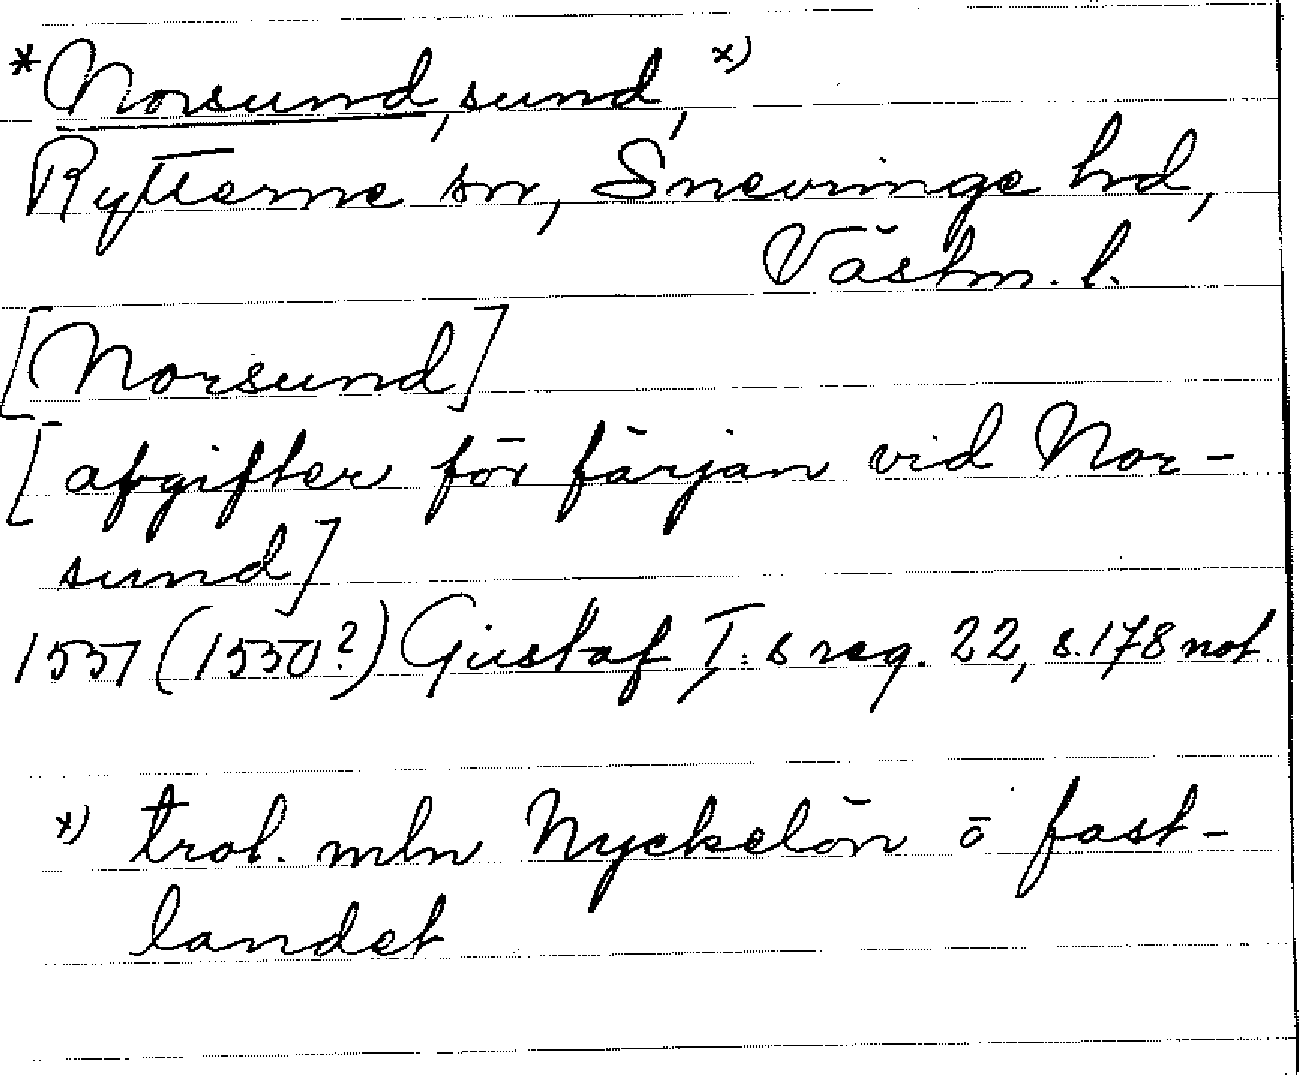 *Norsund, sund, x)
Rytterne sn, Snevringe hd,
Västm. l.
[Norsund]
[afgifter för färjan vid Nor-
sund]
1537 (1550?) Gustaf I:s reg. 22, s. 178 not
x) trol. mln Nyckelön o fast-
landet